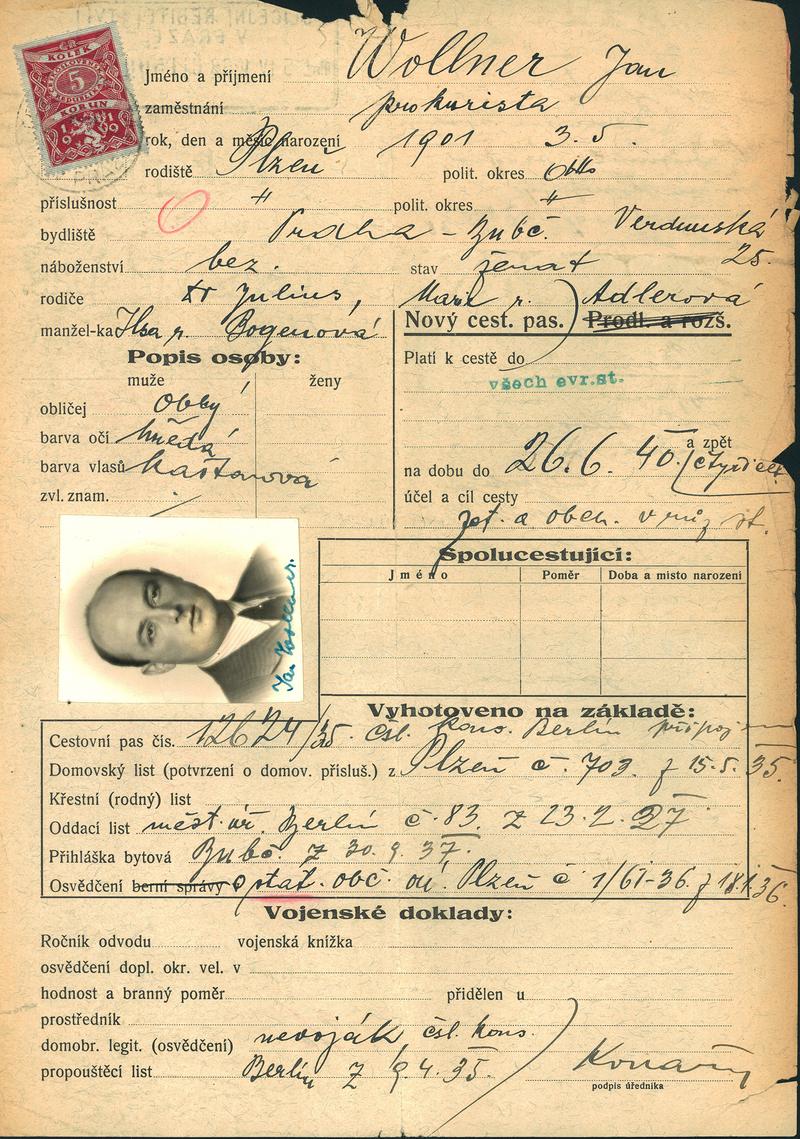 KOLEK
ČESKOSLOVENSKÁ
5
REPUBLIKA
KORUN
1919
Jméno a příjmení Wollner Jan
zaměstnání prokurista
rok, den a měsíc narození 1901 3. 5.
rodiště Plzeň polit. okres
příslušnost " polit. okres "
bydliště Praha - Bubč. Verdunská
25.
náboženství bez. stav ženat
rodiče Julius, Marie r. Adlerová
manžel-ka Ilsa r. Bogenová
Nový cest. pas. Prodl. a rozš.
Popis osoby:
Platí k cestě do
všech evr.st.
muže ženy
obličej oblý
barva očí hnědá
barva vlasů kaštanová
zvl. znam.
na dobu do 26. 6. 40. a zpět
účel a cíl cesty
zot. a obch. v růz st.
Spolucestující:
Jméno Poměr Doba a místo narození
Jan Wollner.
Vyhotoveno na základě:
Cestovní pas čís. 12624/35 čsl. kons. Berlín připoj
Domovský list (potvrzení o domov. přísluš.) z Plzeň č. 703. z 15. 5. 35.
Křestní (rodný) list
Oddací list měst. úř. Berlín č. 83. z 23. 2. 27
Přihláška bytová Bubč. z 30. 9. 37.
Osvědčení berní správy o stát. obč. oú. Plzeň č 1/61-36. z 18.1.36.
Vojenské doklady:
Ročník odvodu vojenská knížka
osvědčení dopl. okr. vel. v
hodnost a branný poměr přidělen u
prostředník
domobr. legit. (osvědčení) nevoják čsl. kons.
propouštěcí list Berlín z 9. 4. 35.
podpis úředníka